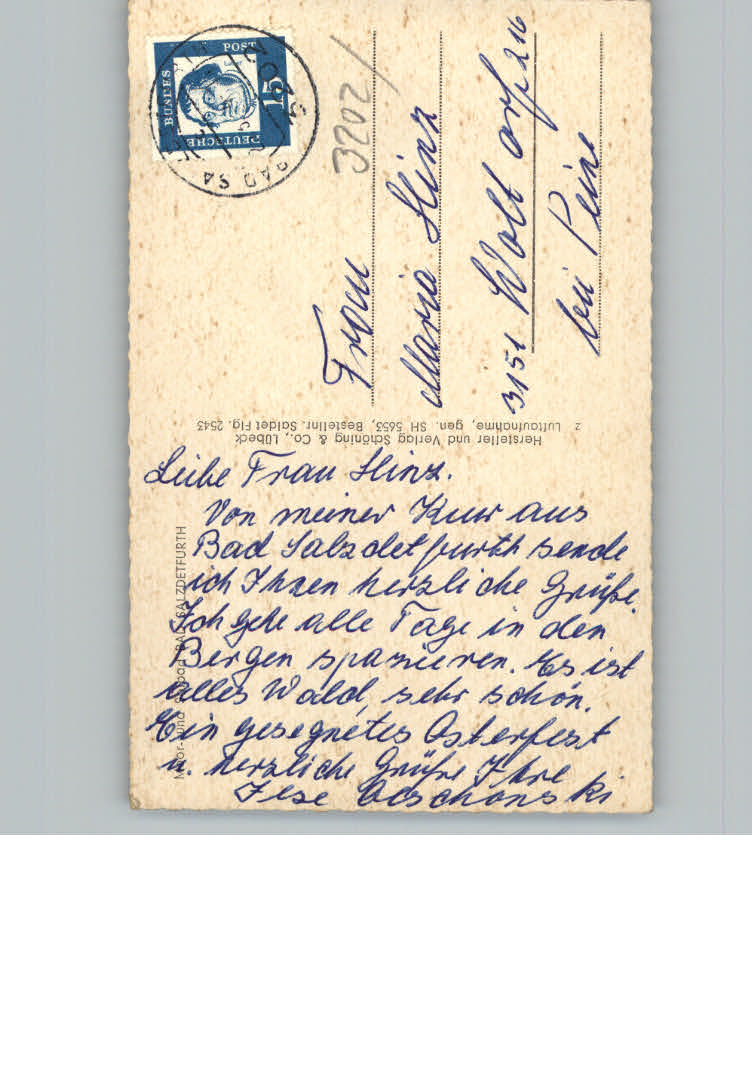 Leibe Frau Hinz.
Von meiner Kur aus
Bad Salzdetfurth sende
ich Ihnen herzliche Grüße.
Ich gehe alle Tage in den
Bergen spazieren. Es ist
alles Wald, sehr schön.
Ein gesegnetes Osterfest
u. herzliche Grüße Ihre
Ilse
Frau
Maria Hinz
3151 Woltorf 216
bei Peine
3202/
DEUTSCHE BUNDESPOST
15
3202
BAD SA
Hersteller und Verlag Schöning & Co., Lübeck
z Luftaufnahme, gen. SH 5653, Bestellnr. Saldet Flg. 2543
Moor- und BAD SALZDETFURTH